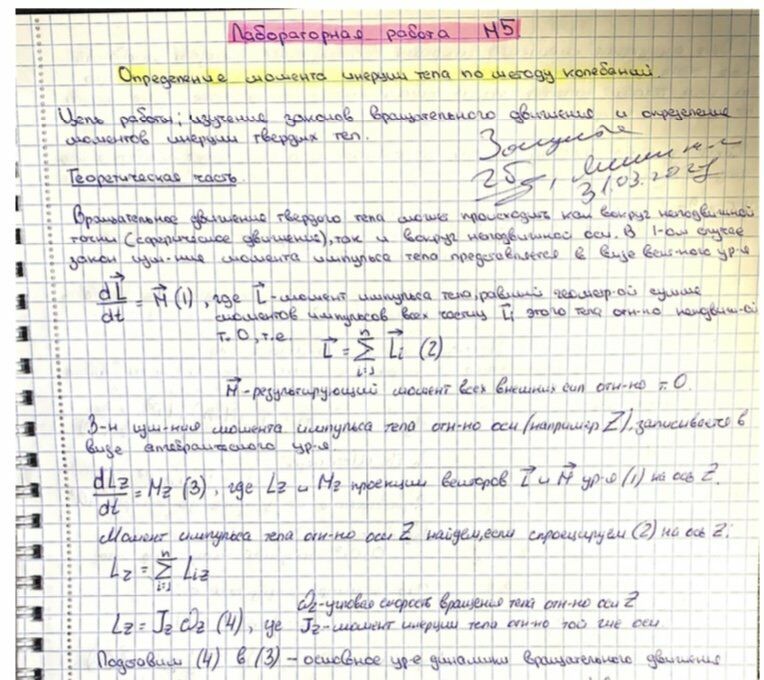 Лабораторная работа №5
Определение момента инерции тела по методу колебаний.
Цель работы: изучение законов вращательного движения и определение
моментов инерции твердых тел.
31.03.2021
Теоретическая часть.
Вращательное движение твердого тела может происходить как вокруг неподвижной
точки (сферическое движение), так и вокруг неподвижной оси. В 1-ом случае
закон изм-ния момента импульса тела представляется в виде вект-ного ур-я
dL⃗/dt = M⃗ (1), где L⃗ - момент импульса тела, равный геометр-ой сумме
моментов импульсов всех частиц L⃗i этого тела отн-но неподвиж-ой
т. О, т.е.
L⃗ = Σ(i=1..n) L⃗i (2)
M⃗ - результирующий момент всех внешних сил отн-но т. О.
З-н изм-ния момента импульса тела отн-но оси (например Z), записывается в
виде алгебраического ур-я.
dLz/dt = Mz (3), где Lz и Mz проекции векторов L⃗ и M⃗ ур-я (1) на ось Z.
Момент импульса тела отн-но оси Z найдем, если спроецируем (2) на ось Z:
Lz = Σ(i=1..n) Liz
ωz - угловая скорость вращения тела отн-но оси Z
Lz = Jz ωz (4), где Jz - момент инерции тела отн-но той же оси
Подставим (4) в (3) - основное ур-е динамики вращательного движения